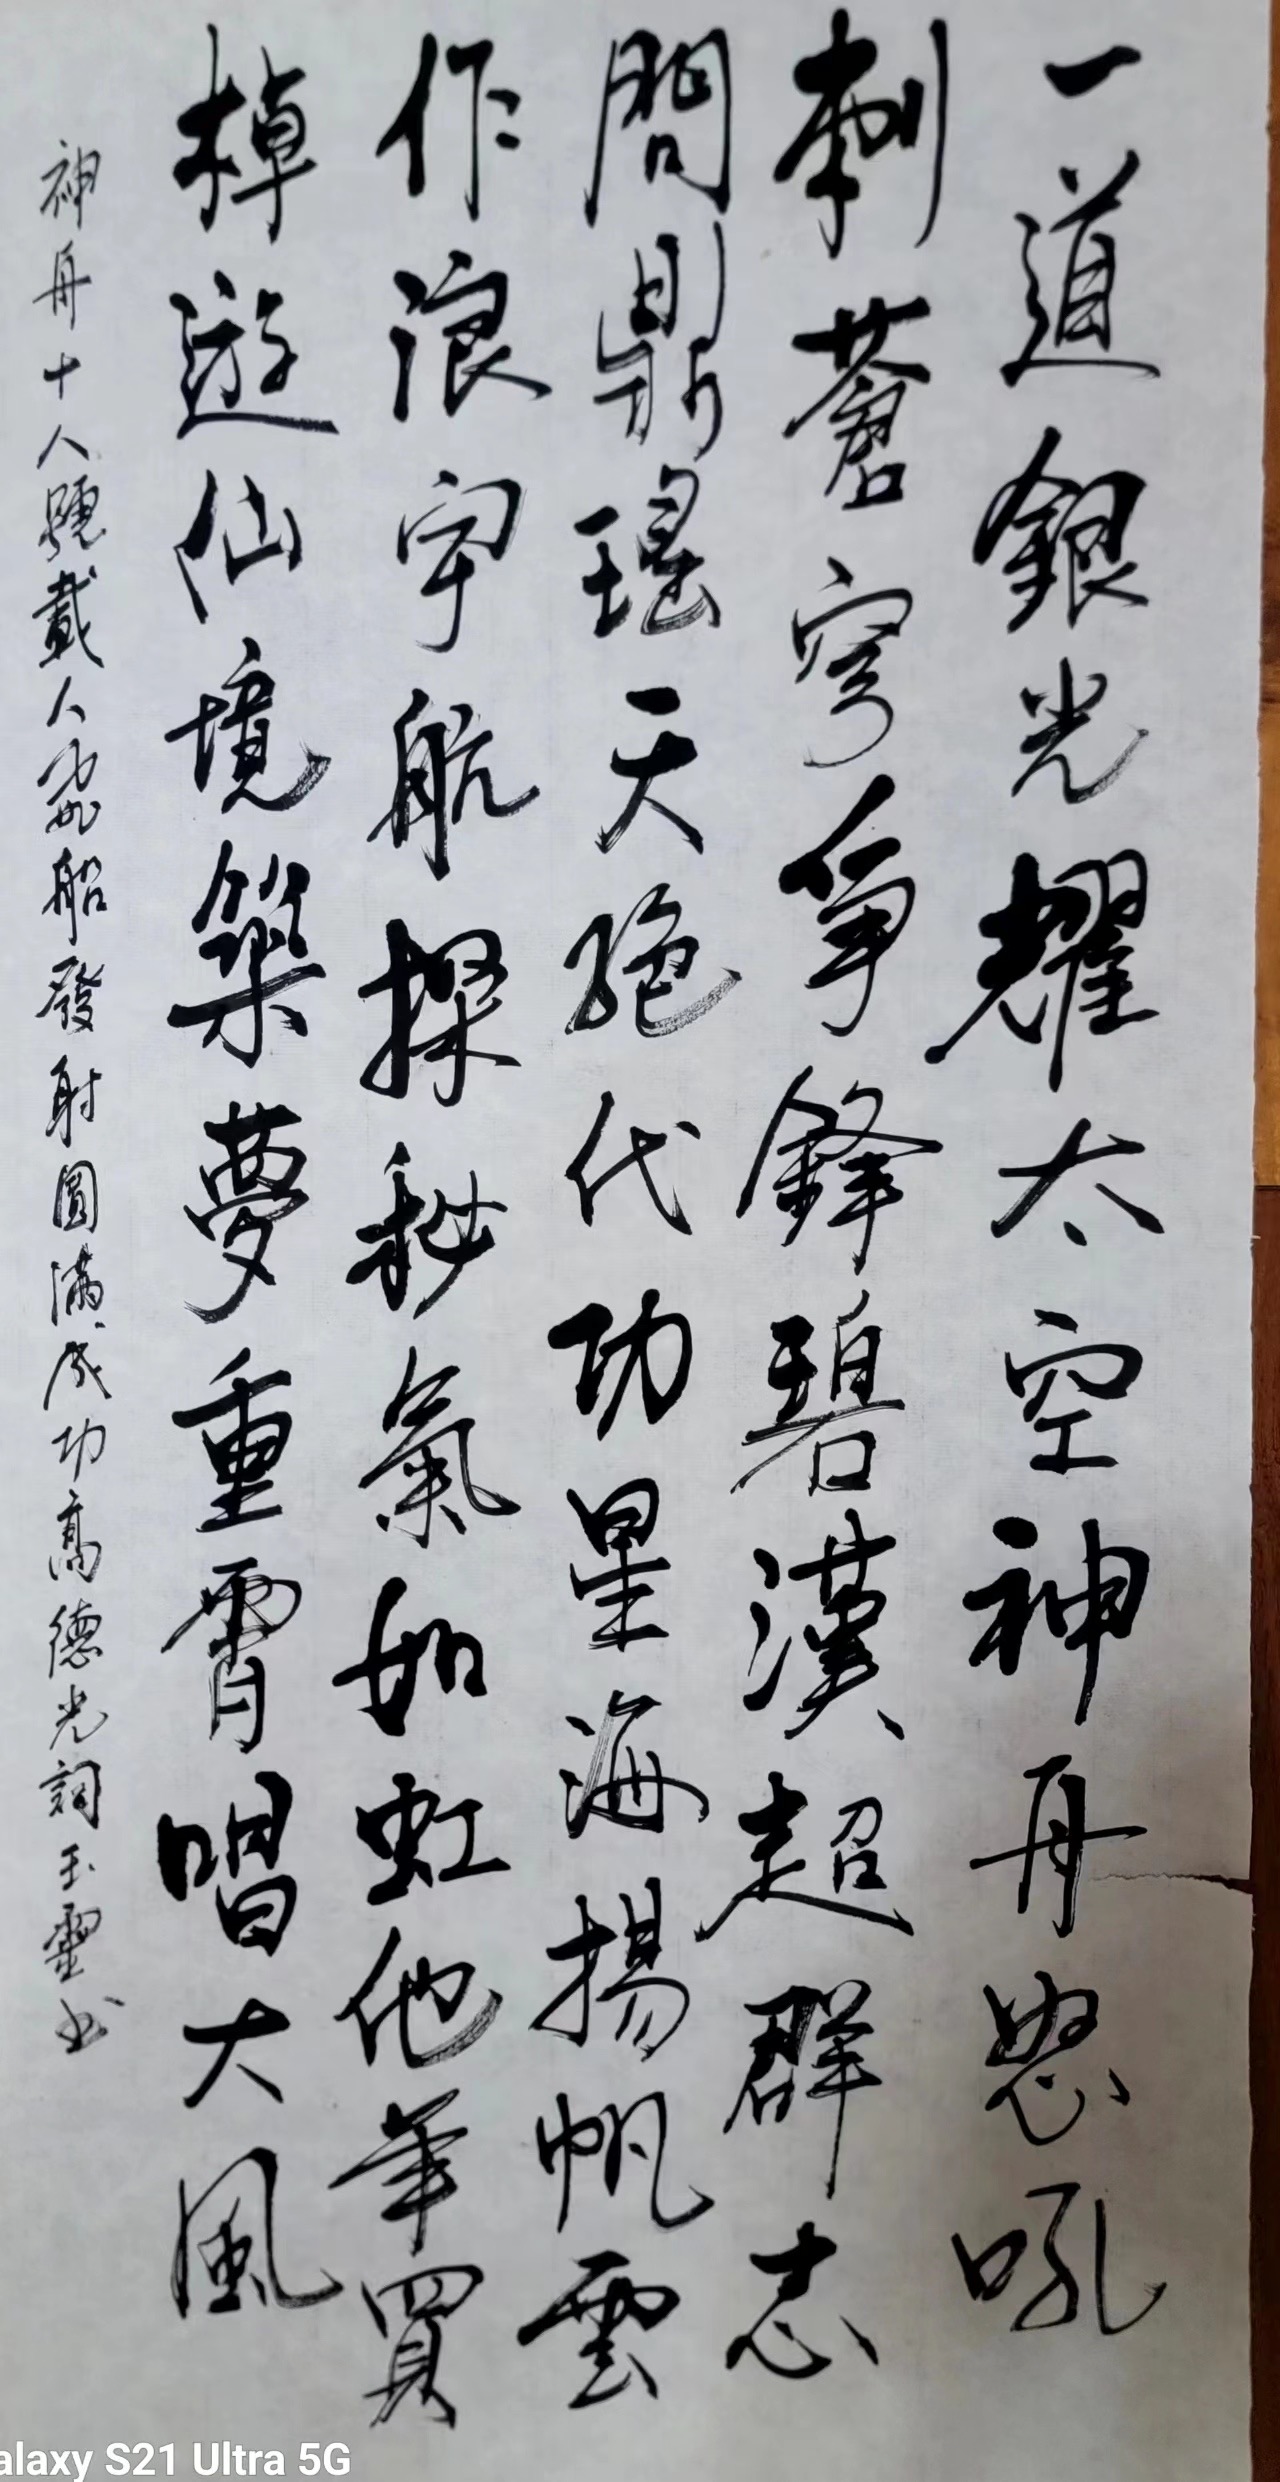 一道銀光耀太空神舟怒吼
刺蒼穹爭鋒碧漢超群志
問鼎瑶天絕代功星海揚帆雲
作浪宇航探秘氣如虹他年買
棹遊仙境築夢重霄唱大風
神舟十八號載人飛船發射圓滿成功高德光詞玉靈书
alaxy S21 Ultra 5G